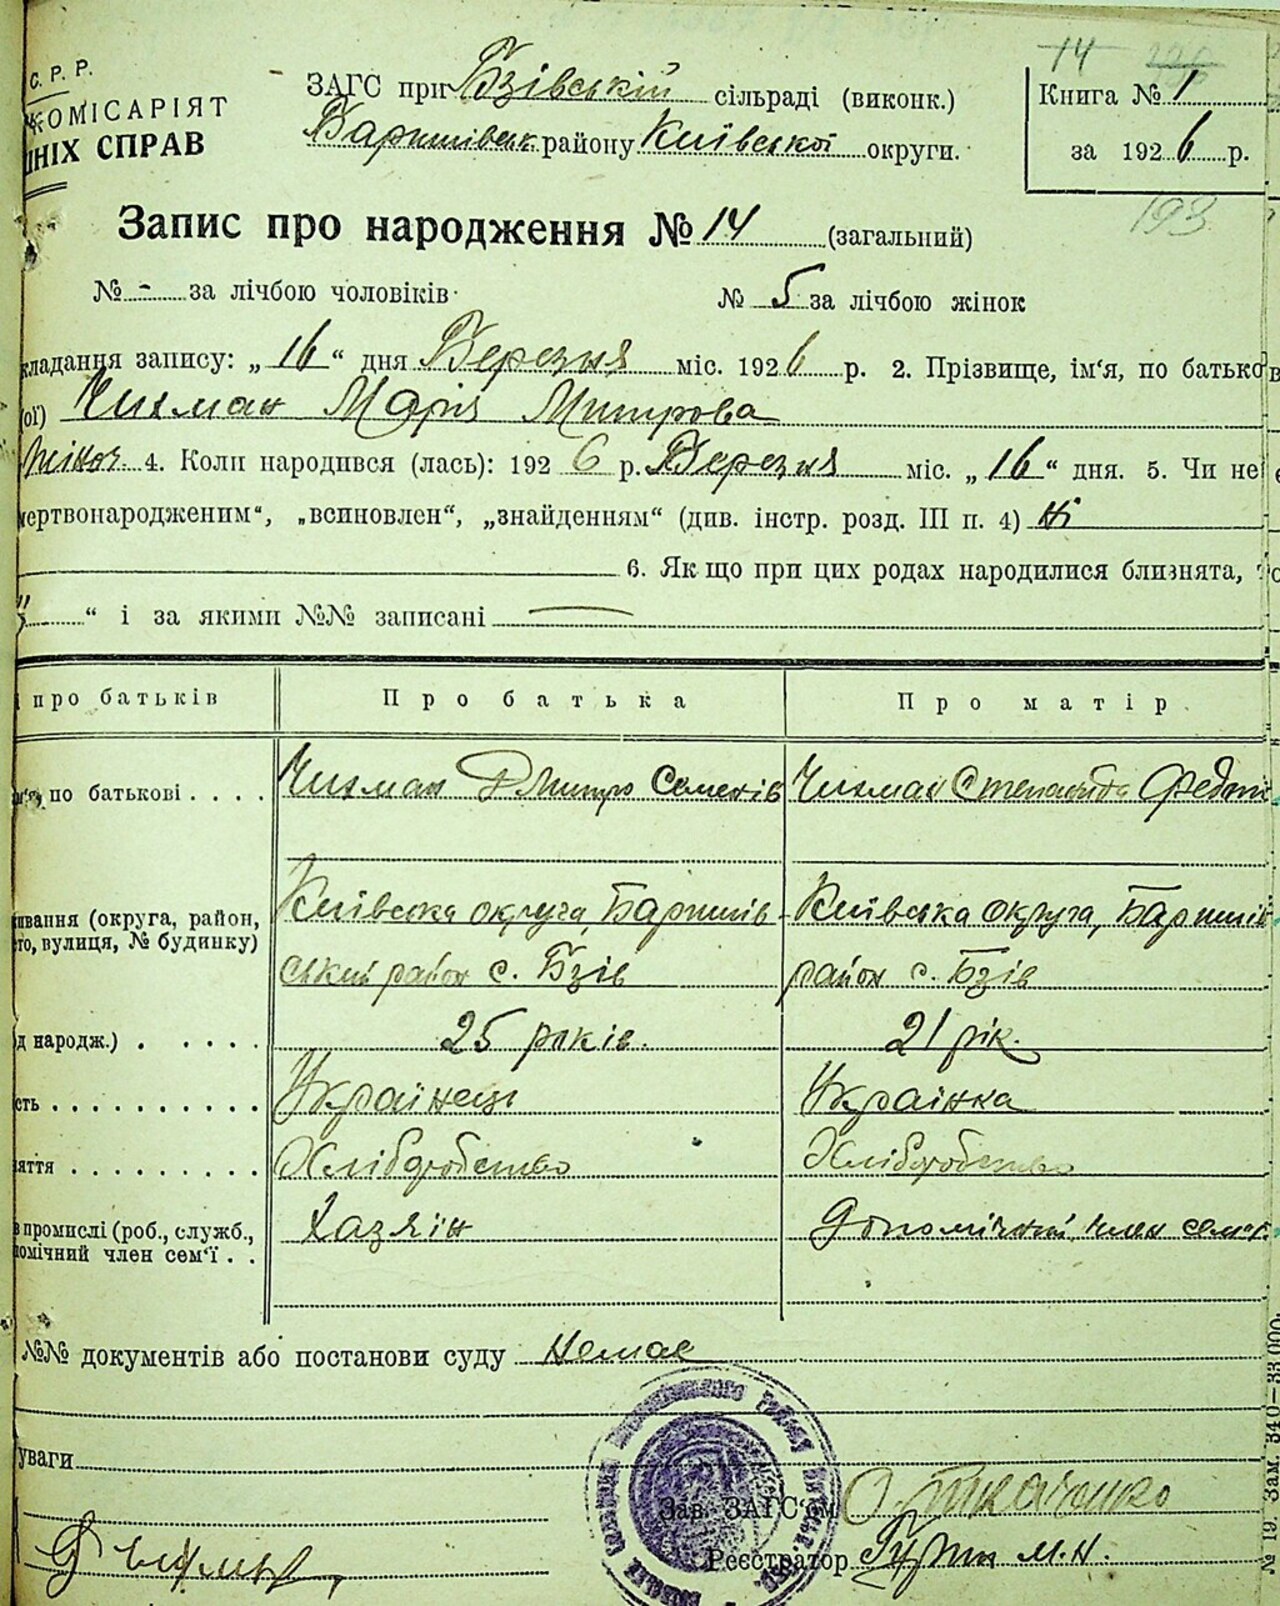 С. Р. Р.
КОМІСАРІЯТ
ШНІХ СПРАВ
ЗАГС при Бзівській сільраді (виконк.)
Баришівськ району Київської округи.
14
Книга № 1
за 1926 р.
193
Запис про народження № 14 (загальний)
№ - за лічбою чоловіків
№ 5 за лічбою жінок
кладання запису: „16“ дня Березня міс. 1926 р. 2. Прізвище, ім'я, по батьков
(ої) Чихман Марія Митрова
жіноч. 4. Коли народився (лась): 1926 р. Березня міс. „16“ дня. 5. Чи не є
мертвонародженим“, „всиновлен“, „знайденням“ (див. інстр. розд. III п. 4) ні
6. Якщо при цих родах народилися близнята, то
“ і за якими №№ записані
і про батьків
Про батька
Про матір
по батькові
Чихман Дмитро Семенів
Чихман Степанида
ивання (округа, район,
то, вулиця, № будинку)
Київська округа, Баришів
ський район с. Бзів
Київська округа, Баришів
район с. Бзів
д народж.)
25 років.
21 рік.
сть
Українець
Українка
яття
Хліборобство
Хліборобство
в промислі (роб., служб.,
омічний член сем'ї
Хазяїн
Допоміжний член сем'ї.
№№ документів або постанови суду немає
уваги
Зав. ЗАГС'ом О. Ткаченко
Реєстратор М. Н.
№ 19. Зам. 340—33.000.